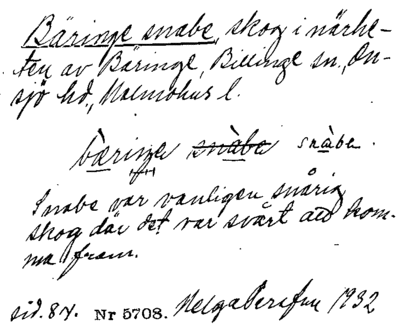 Bäringe snabe, skog i närhe-
ten av Bäringe, Billinge sn., On-
sjö hd., Malmöhus l.
bæringe snàbe snàbe.
Snabe var vanligen snårig
skog där det var svårt att kom-
ma fram.
sid. 84. Nr 5708. Helga Persson 1932